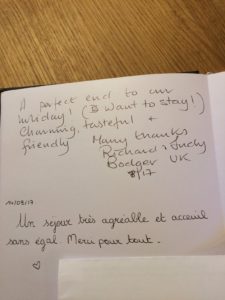 A perfect end to our
holiday! (& want to stay!)
Charming, tasteful +
friendly
Many thanks
Richard & Judy
Bodger UK
8/17
10/09/17
Un séjour très agréable et acceuil
sans égal. Merci pour tout.